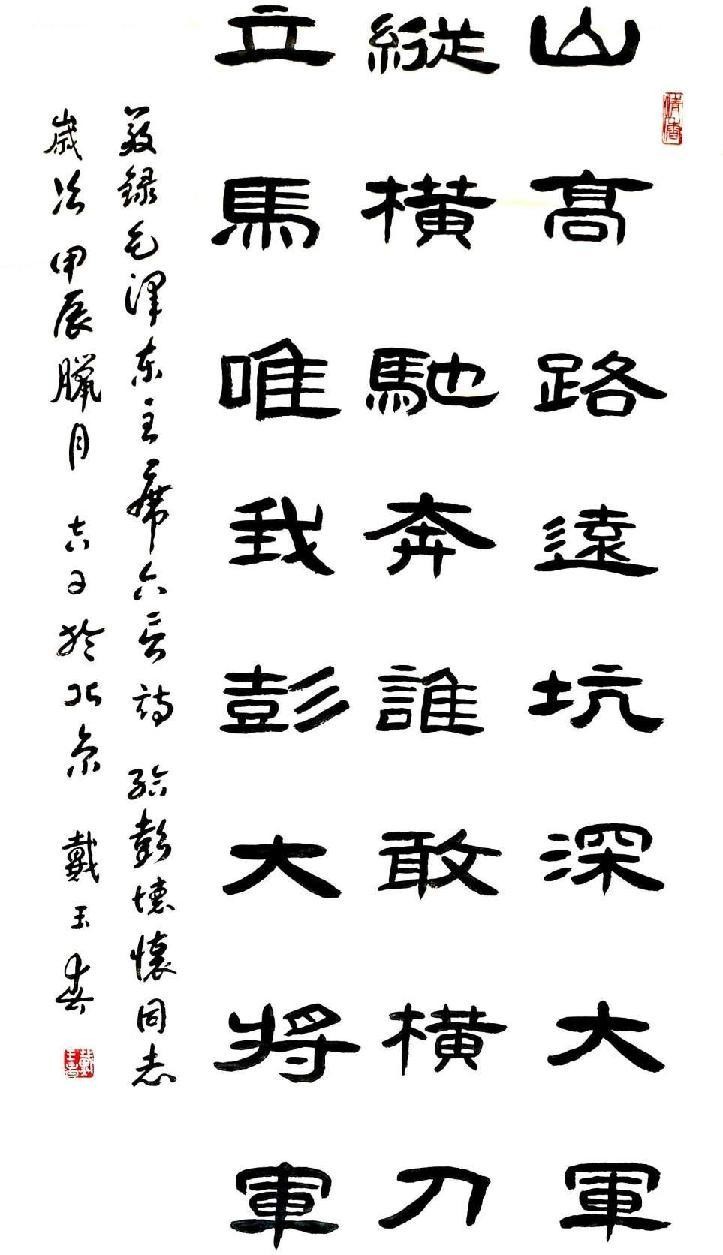 山高路遠坑深大軍
縱横馳奔誰敢横刀
立馬唯我彭大将軍
敬録毛泽东主席六言詩 給彭德懷同志
歲次甲辰臘月吉日於北京 戴玉春
戴玉春